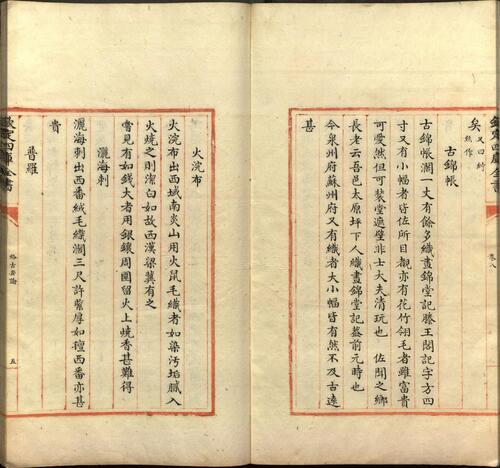 欽定四庫全書
卷八
矣又曰紵絲作
古錦帳
古錦帳濶一丈有餘多織畫錦堂記滕王閣記字方四
寸又有小幅者皆佐所目覩亦有花竹翎毛者雖富貴
可愛然但可裝堂遮壁非士大夫清玩也　佐聞之鄉
長老云吾邑太原坪下人織畫錦堂記葢前元時也
今泉州府蘇州府又有織者大小幅皆有然不及古遠
甚
火浣布
火浣布出西域南炎山用火鼠毛織者如染汚垢膩入
火燒之則潔白如故西漢梁冀有之
嘗見有如錢大者用銀鑲周圍留火上燒香甚難得
灑海剌
灑海剌出西番絨毛織濶三尺許緊厚如氊西番亦甚
貴
普羅
欽定四庫全書
格古要論
五